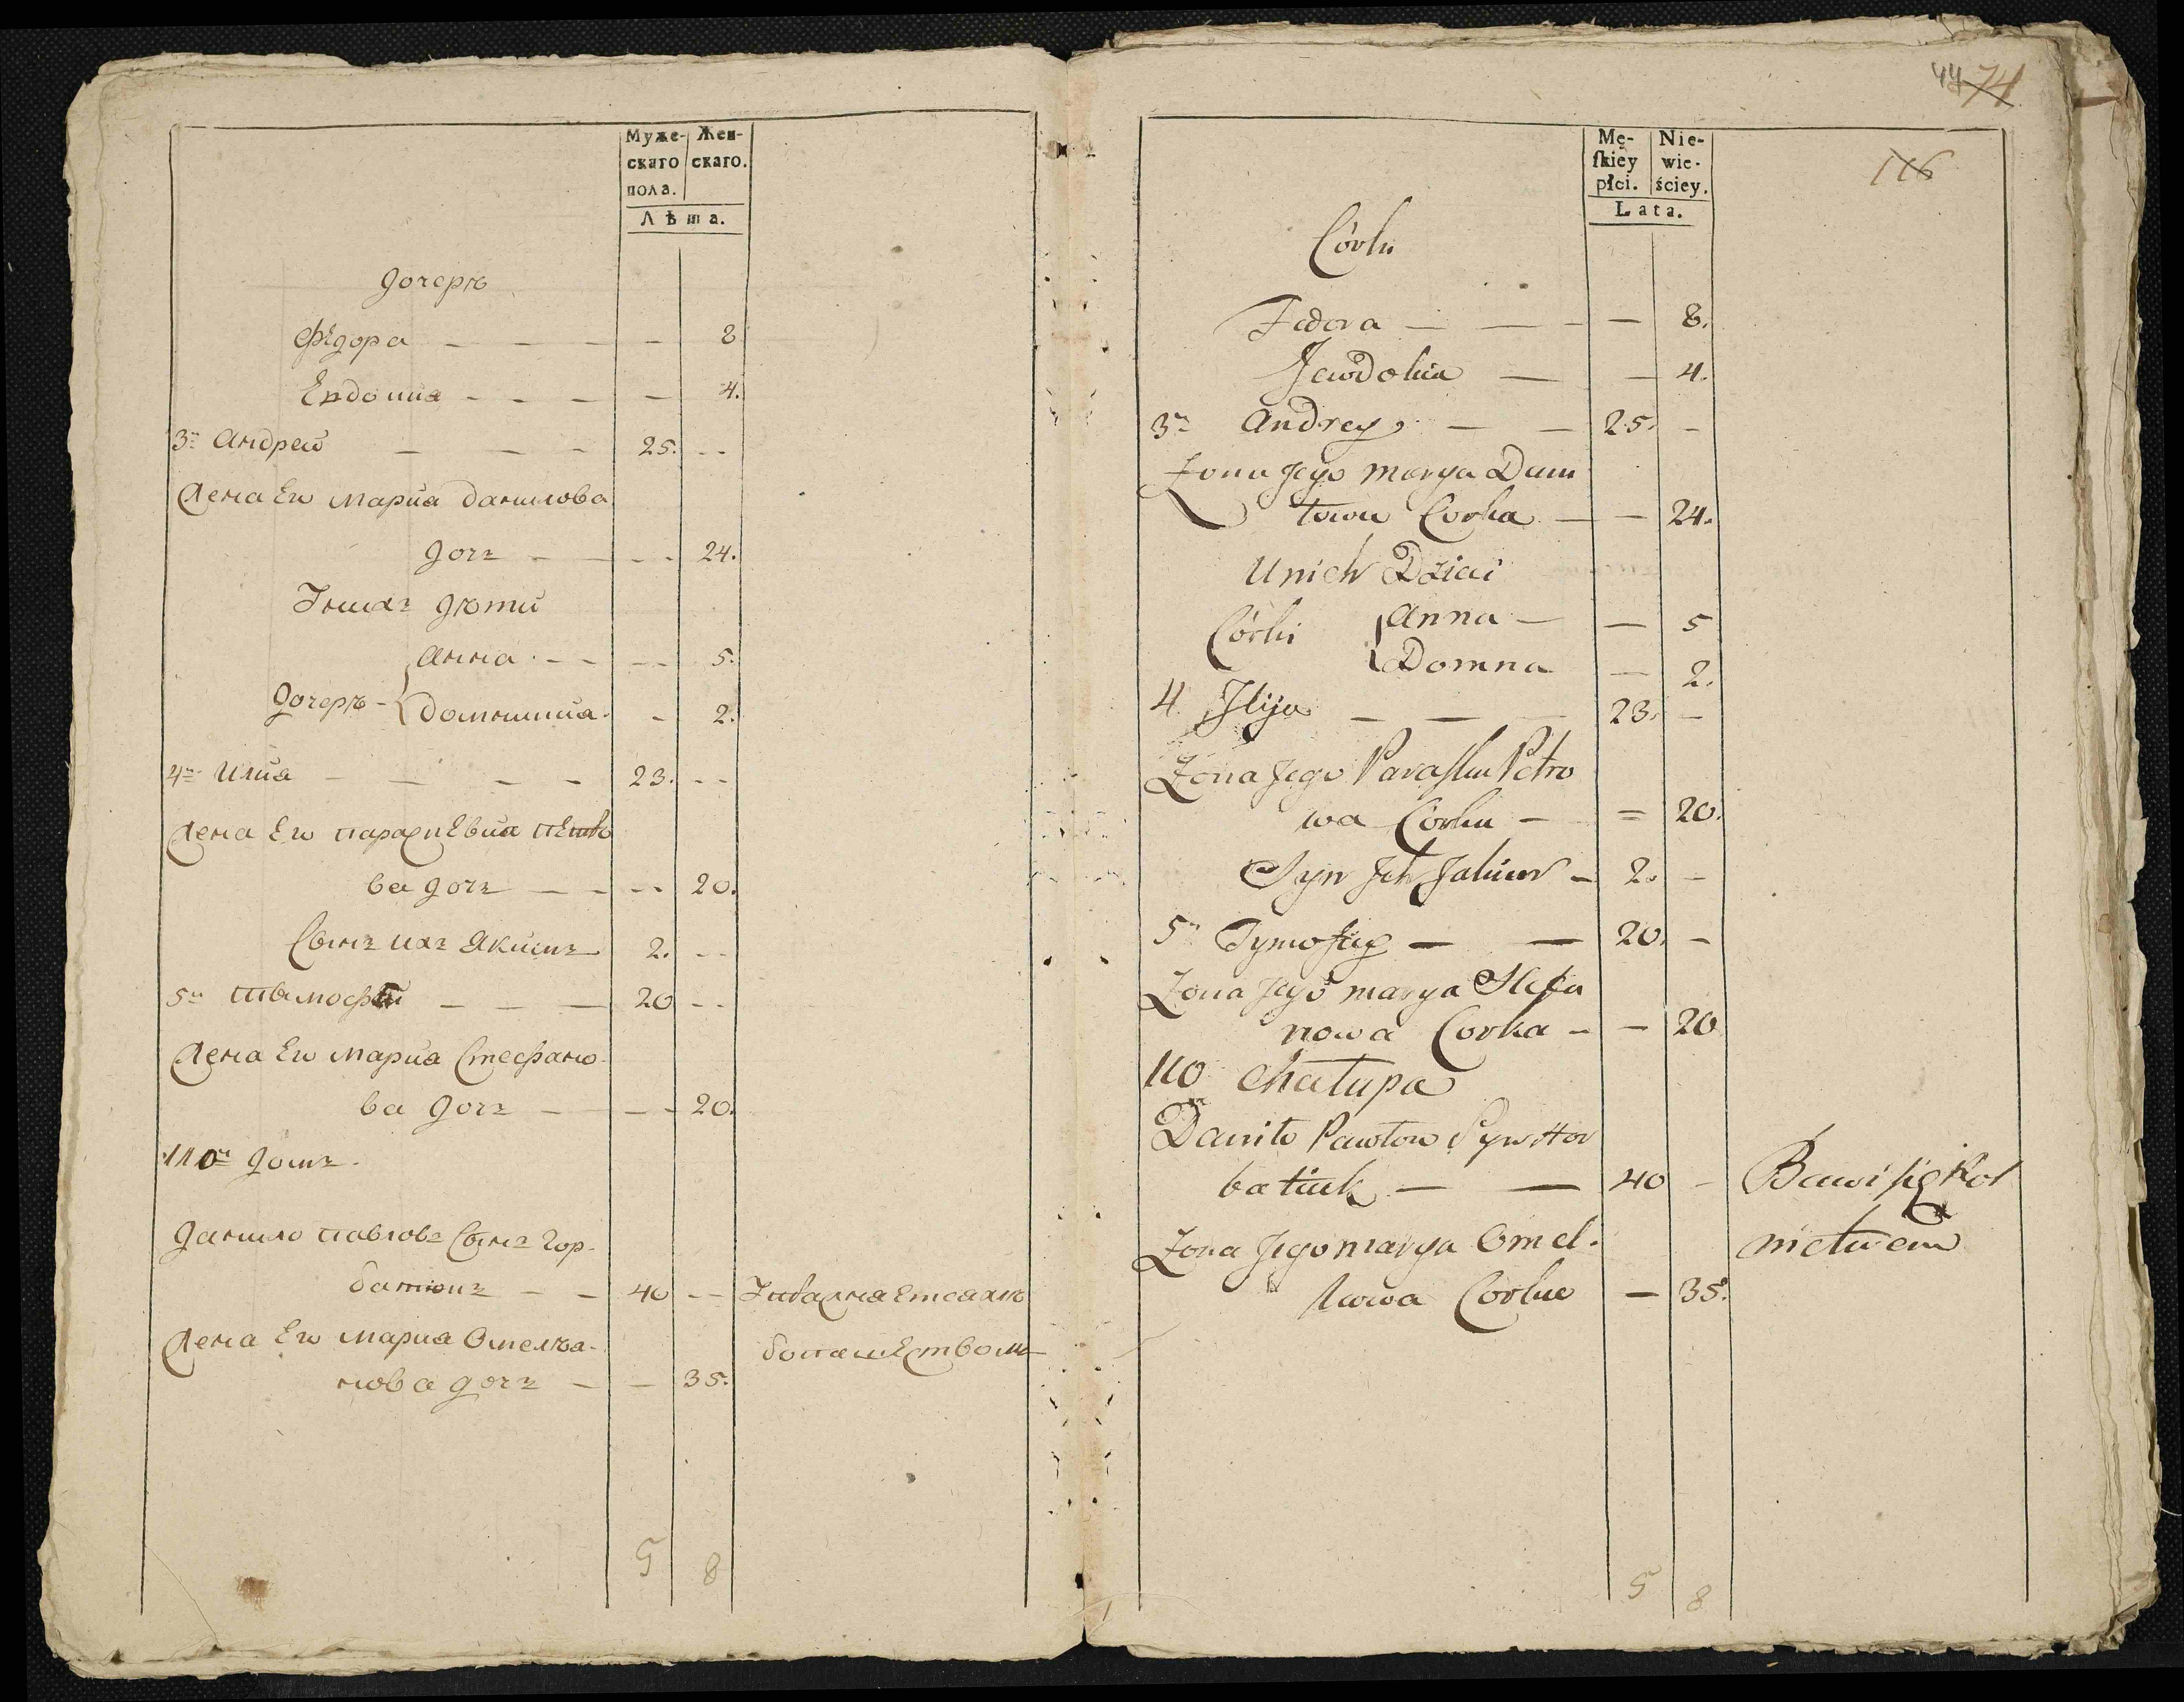 Муже-
скаго
пола.
Жен-
скаго.
Лѣта.
дочерѣ
Федора — — — — 8
Евдокиа — — — — 4.
3й Андрей — — — 25. --
Жена Его Мариа данилова
дочъ — — -- 24.
Унихъ дѣти
дочерѣ - Анна - - -- 5.
домникиа. - 2.
4й Илиа — — — — 23. --
Жена Его парасцевиа петро
ва дочъ — - -- 20.
Сынъ ихъ Якимъ 2. --
5й Тимофей — — — 20 --
Жена Его Мариа Стефано-
ва дочъ — — -- 20.
110й домъ.
Данило павловъ Сынъ Гор-
батюкъ — - 40 --
Жена Его Мариа Омелѣа-
нова дочъ — — 35.
бопашЕством
5 8
44 74
116
Mę-
ſkiey
płci.
Nie-
wie-
ściey.
Lata.
Córki
Fedora — — - — 8.
Jewdokia — — 4.
3ci Andrey — — 25. -
Żona Jego Marya Dani
łowa Corka — — 24.
U nich Dzieci
Córki Anna — — 5
Domna — 2.
4 Jlija — — 23. —
Żona Jego Paraſka Petro
wa Corka — = 20.
Syn Jch Jakim - 2. -
5ty Tymofiey — — 20. -
Żona Jego Marya Stefa
nowa Corka - — 20
110 Chałupa
Daniło Pawłow Syn Hor
batiuk — — 40 - Bawi ſię Rol
nictwem
Żona Jego Marya Omel-
anowa Corka — 35.
5 8